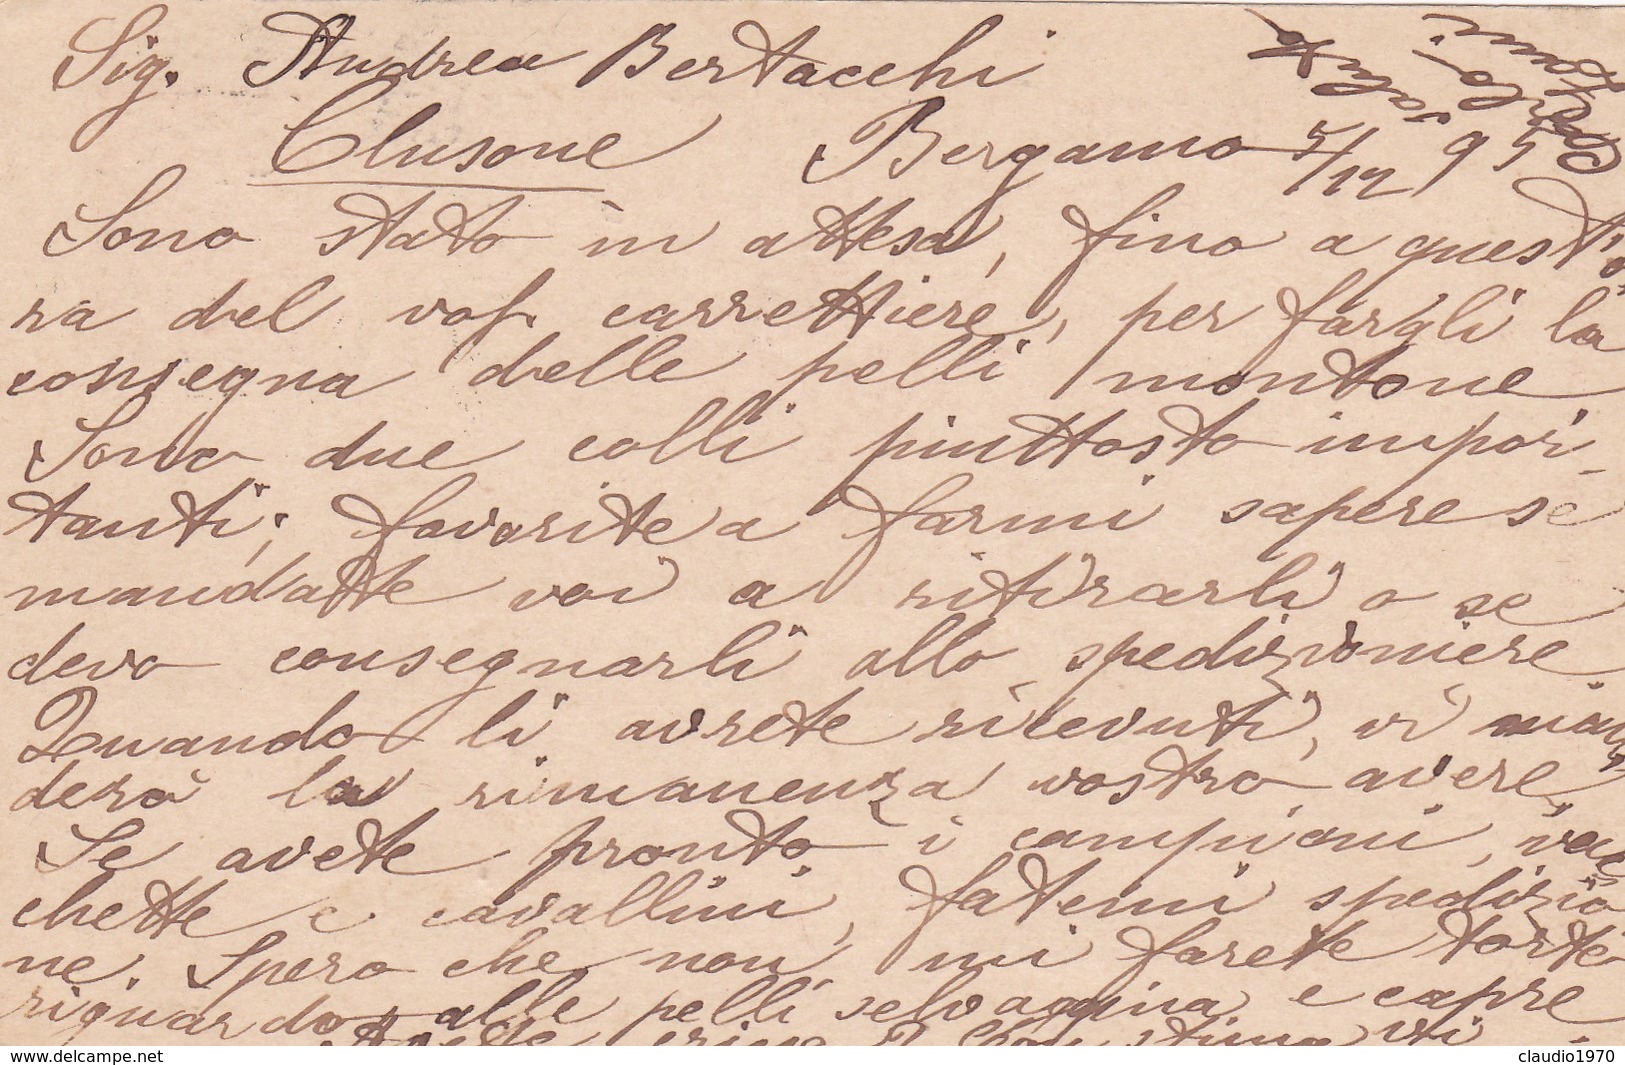 Sig. Andrea Bertacchi
Clusone Bergamo 5/12 95
Sono stato in attesa, fino a quest'o
ra del vos. carrettiere, per fargli la
consegna delle pelli montone
Sono due colli piuttosto impor-
tanti; favorite a farmi sapere se
mandatte voi a ritirarli o se
devo consegnarli allo spedizioniere
Quando li avrete ricevuti, vi man
derò la rimanenza vostro avere.
Se avete pronto i campioni, vac
chette e cavallini, fatemi spedizio
ne. Spero che non mi farete torto
riguardo alle pelli selvaggina e capre
stima vi
saluta
Carlo
www.delcampe.net
claudio1970